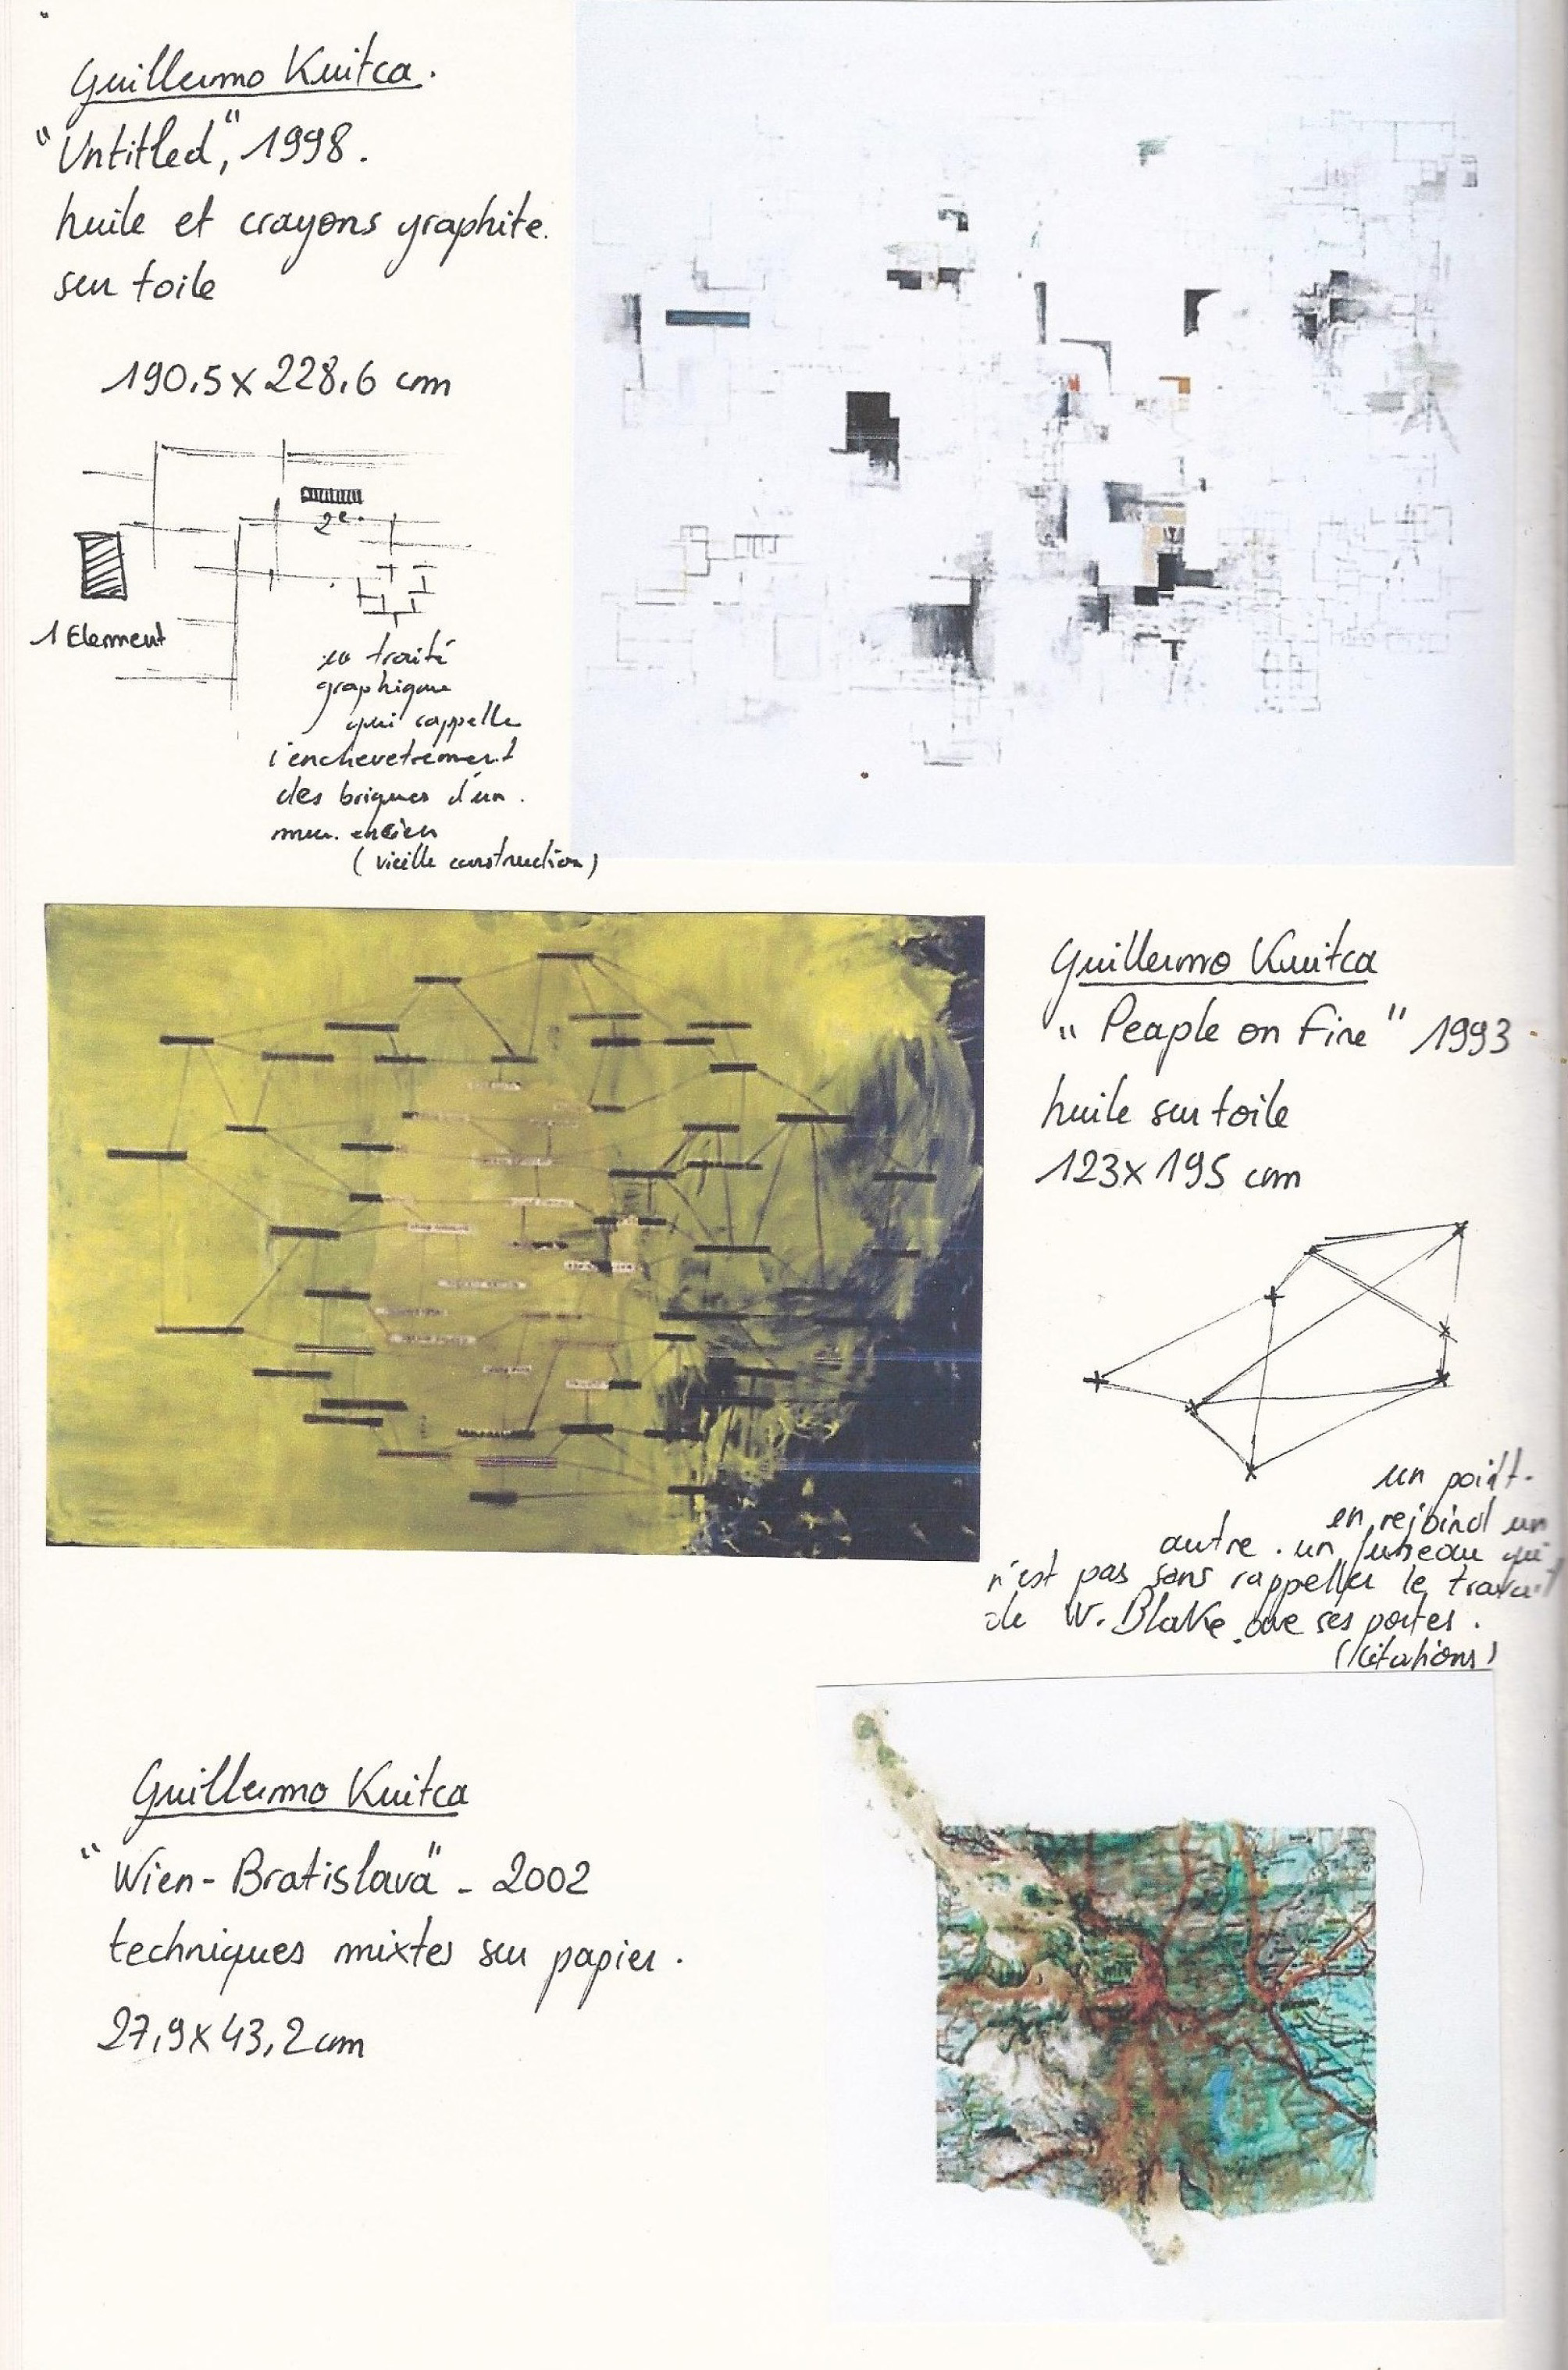 Guillermo Kuitca.
"Untitled", 1998.
huile et crayons graphite.
sur toile
190,5 x 228,6 cm
2e.
1 Element
traité
graphique
qui rappelle
l'enchevetrement
des briques d'un.
mur. ancien
(vieille construction)
Guillermo Kuitca
"Peaple on Fire" 1993
huile sur toile
123 x 195 cm
un point.
en rejoind un
autre. un
n'est pas sans rappeller le travail
de W. Blake. ses portes.
(citations)
Guillermo Kuitca
"Wien-Bratislava" - 2002
techniques mixtes sur papier.
27,9 x 43,2 cm